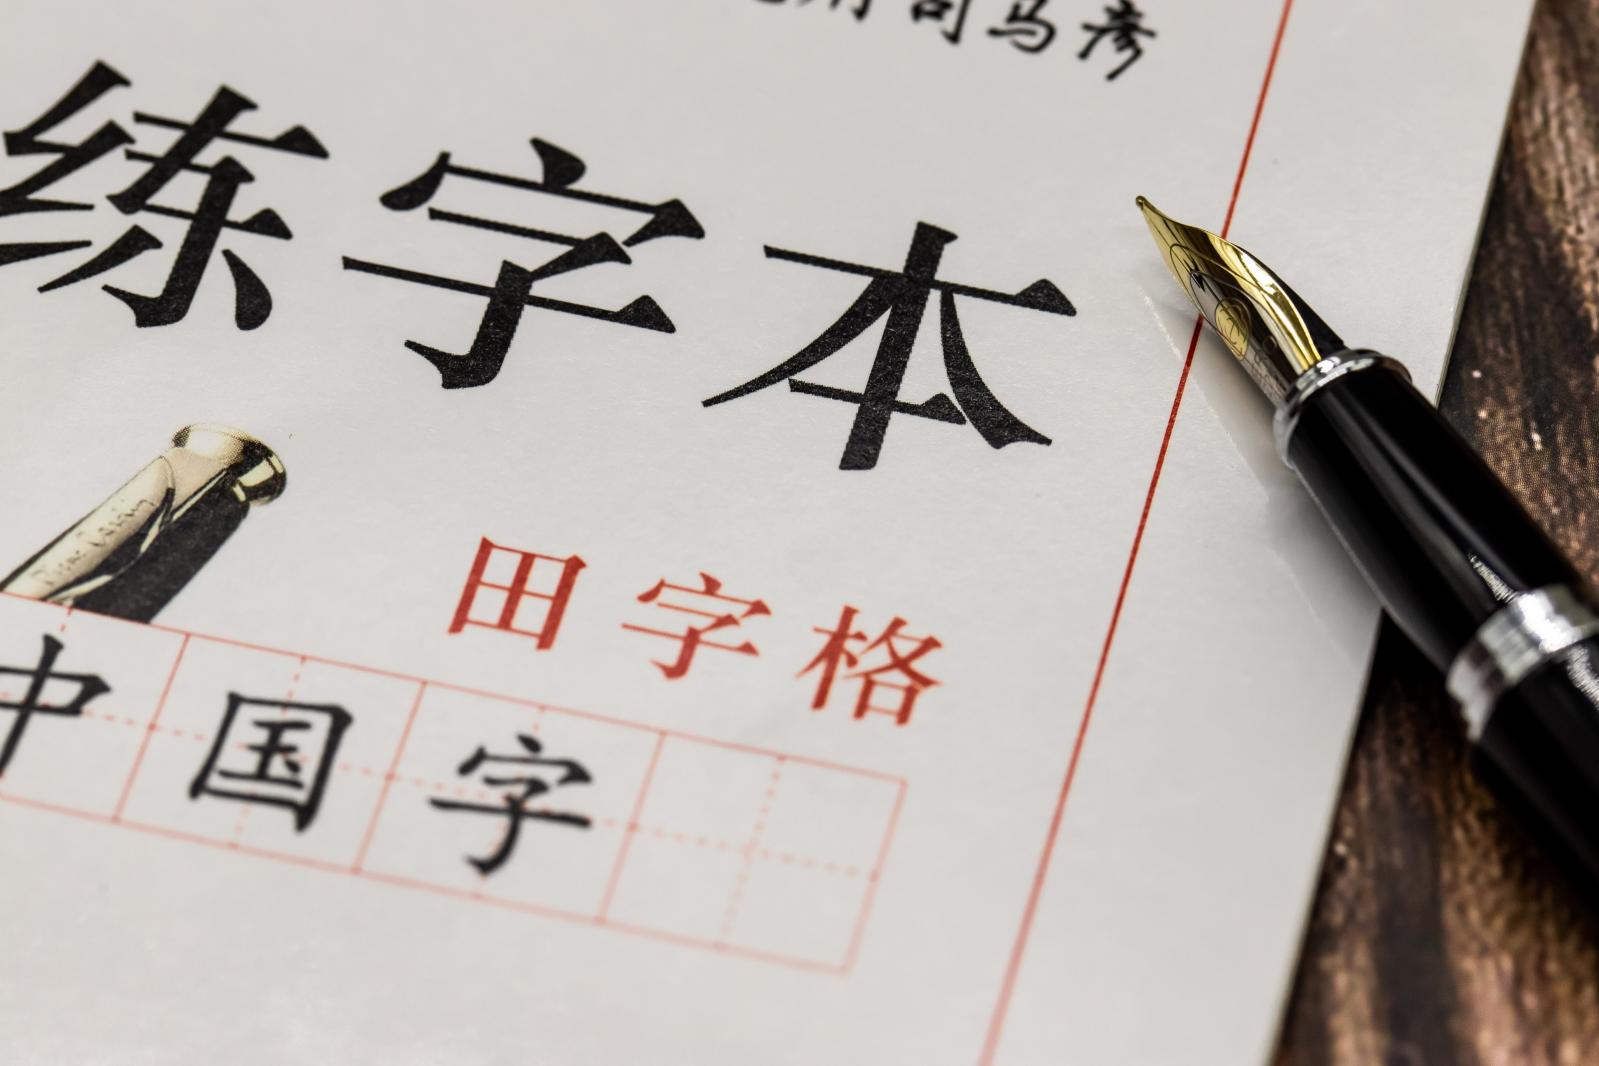 司马彦
练字本
田字格
中国字